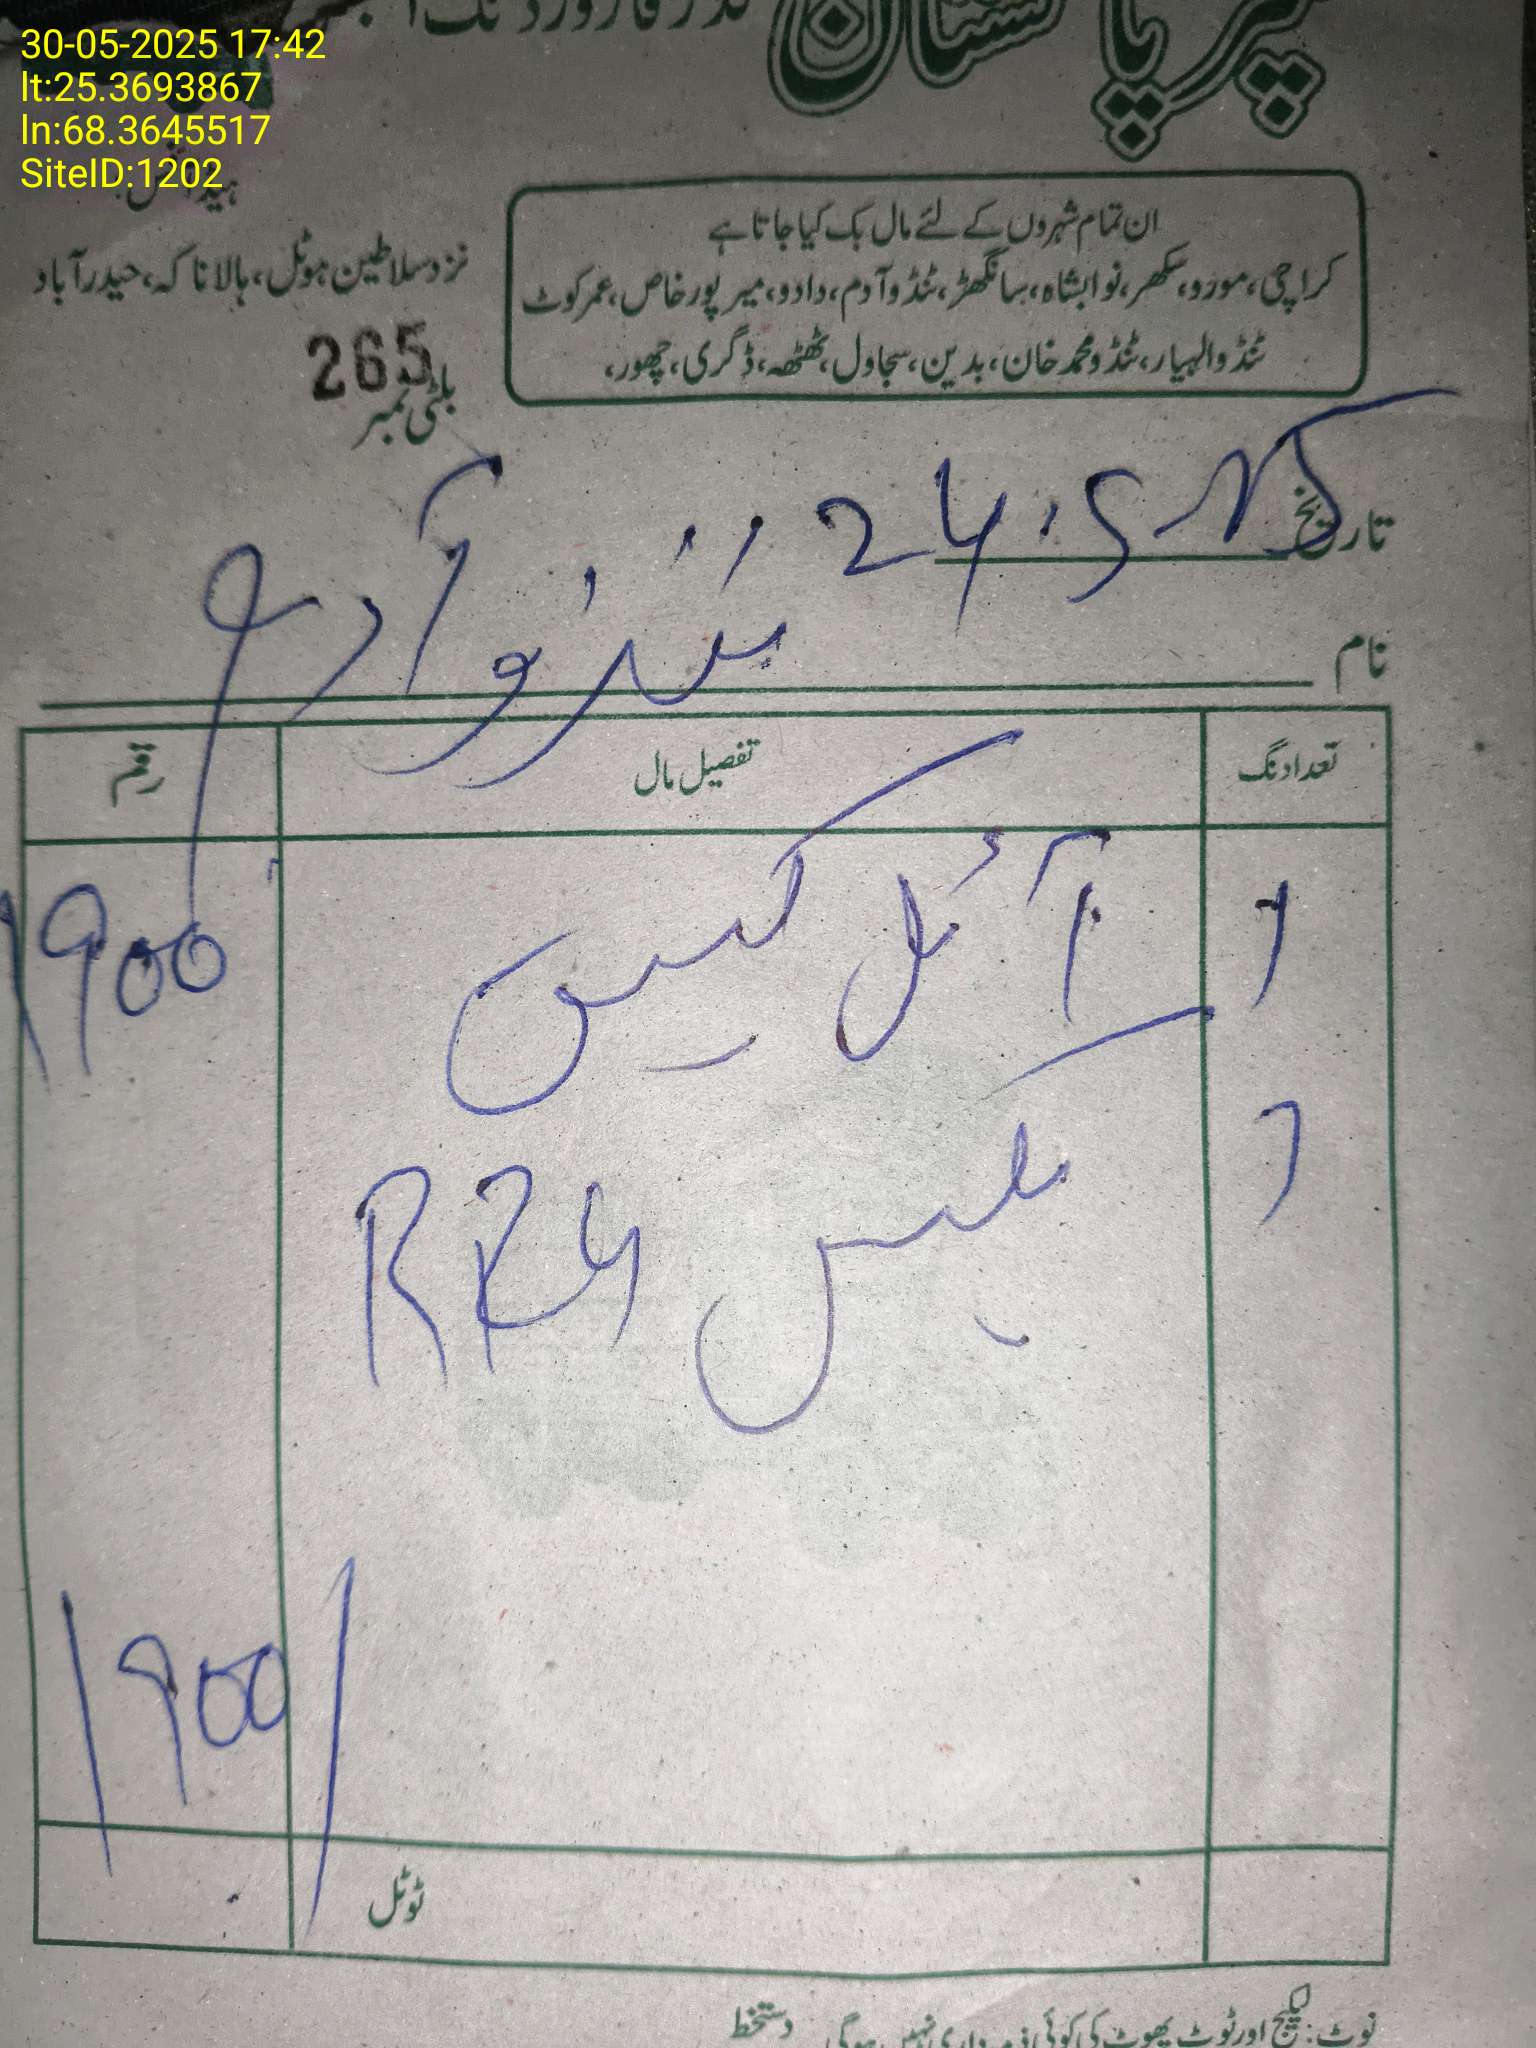 30-05-2025 17:42
lt:25.3693867
ln:68.3645517
SiteID:1202
پاکستان
ہیڈ آفس:
نزد سلاطین ہوٹل، ہالا ناکہ، حیدرآباد
ان تمام شہروں کے لئے مال بک کیا جاتا ہے
کراچی، مورو، سکھر، نوابشاہ، سانگھڑ، ٹنڈو آدم، دادو، میرپور خاص، عمر کوٹ
ٹنڈو الہیار، ٹنڈو محمد خان، بدین، سجاول، ٹھٹھہ، ڈگری، چھور،
بلٹی نمبر 265
تاریخ 24.5.25
نام ٹنڈو آدم
تعداد نگ تفصیل مال رقم
1 آئل کیس 1900
RRG
1900/
ٹوٹل
نوٹ: لیکیج اور ٹوٹ پھوٹ کی کوئی ذمہ داری نہیں ہوگی دستخط